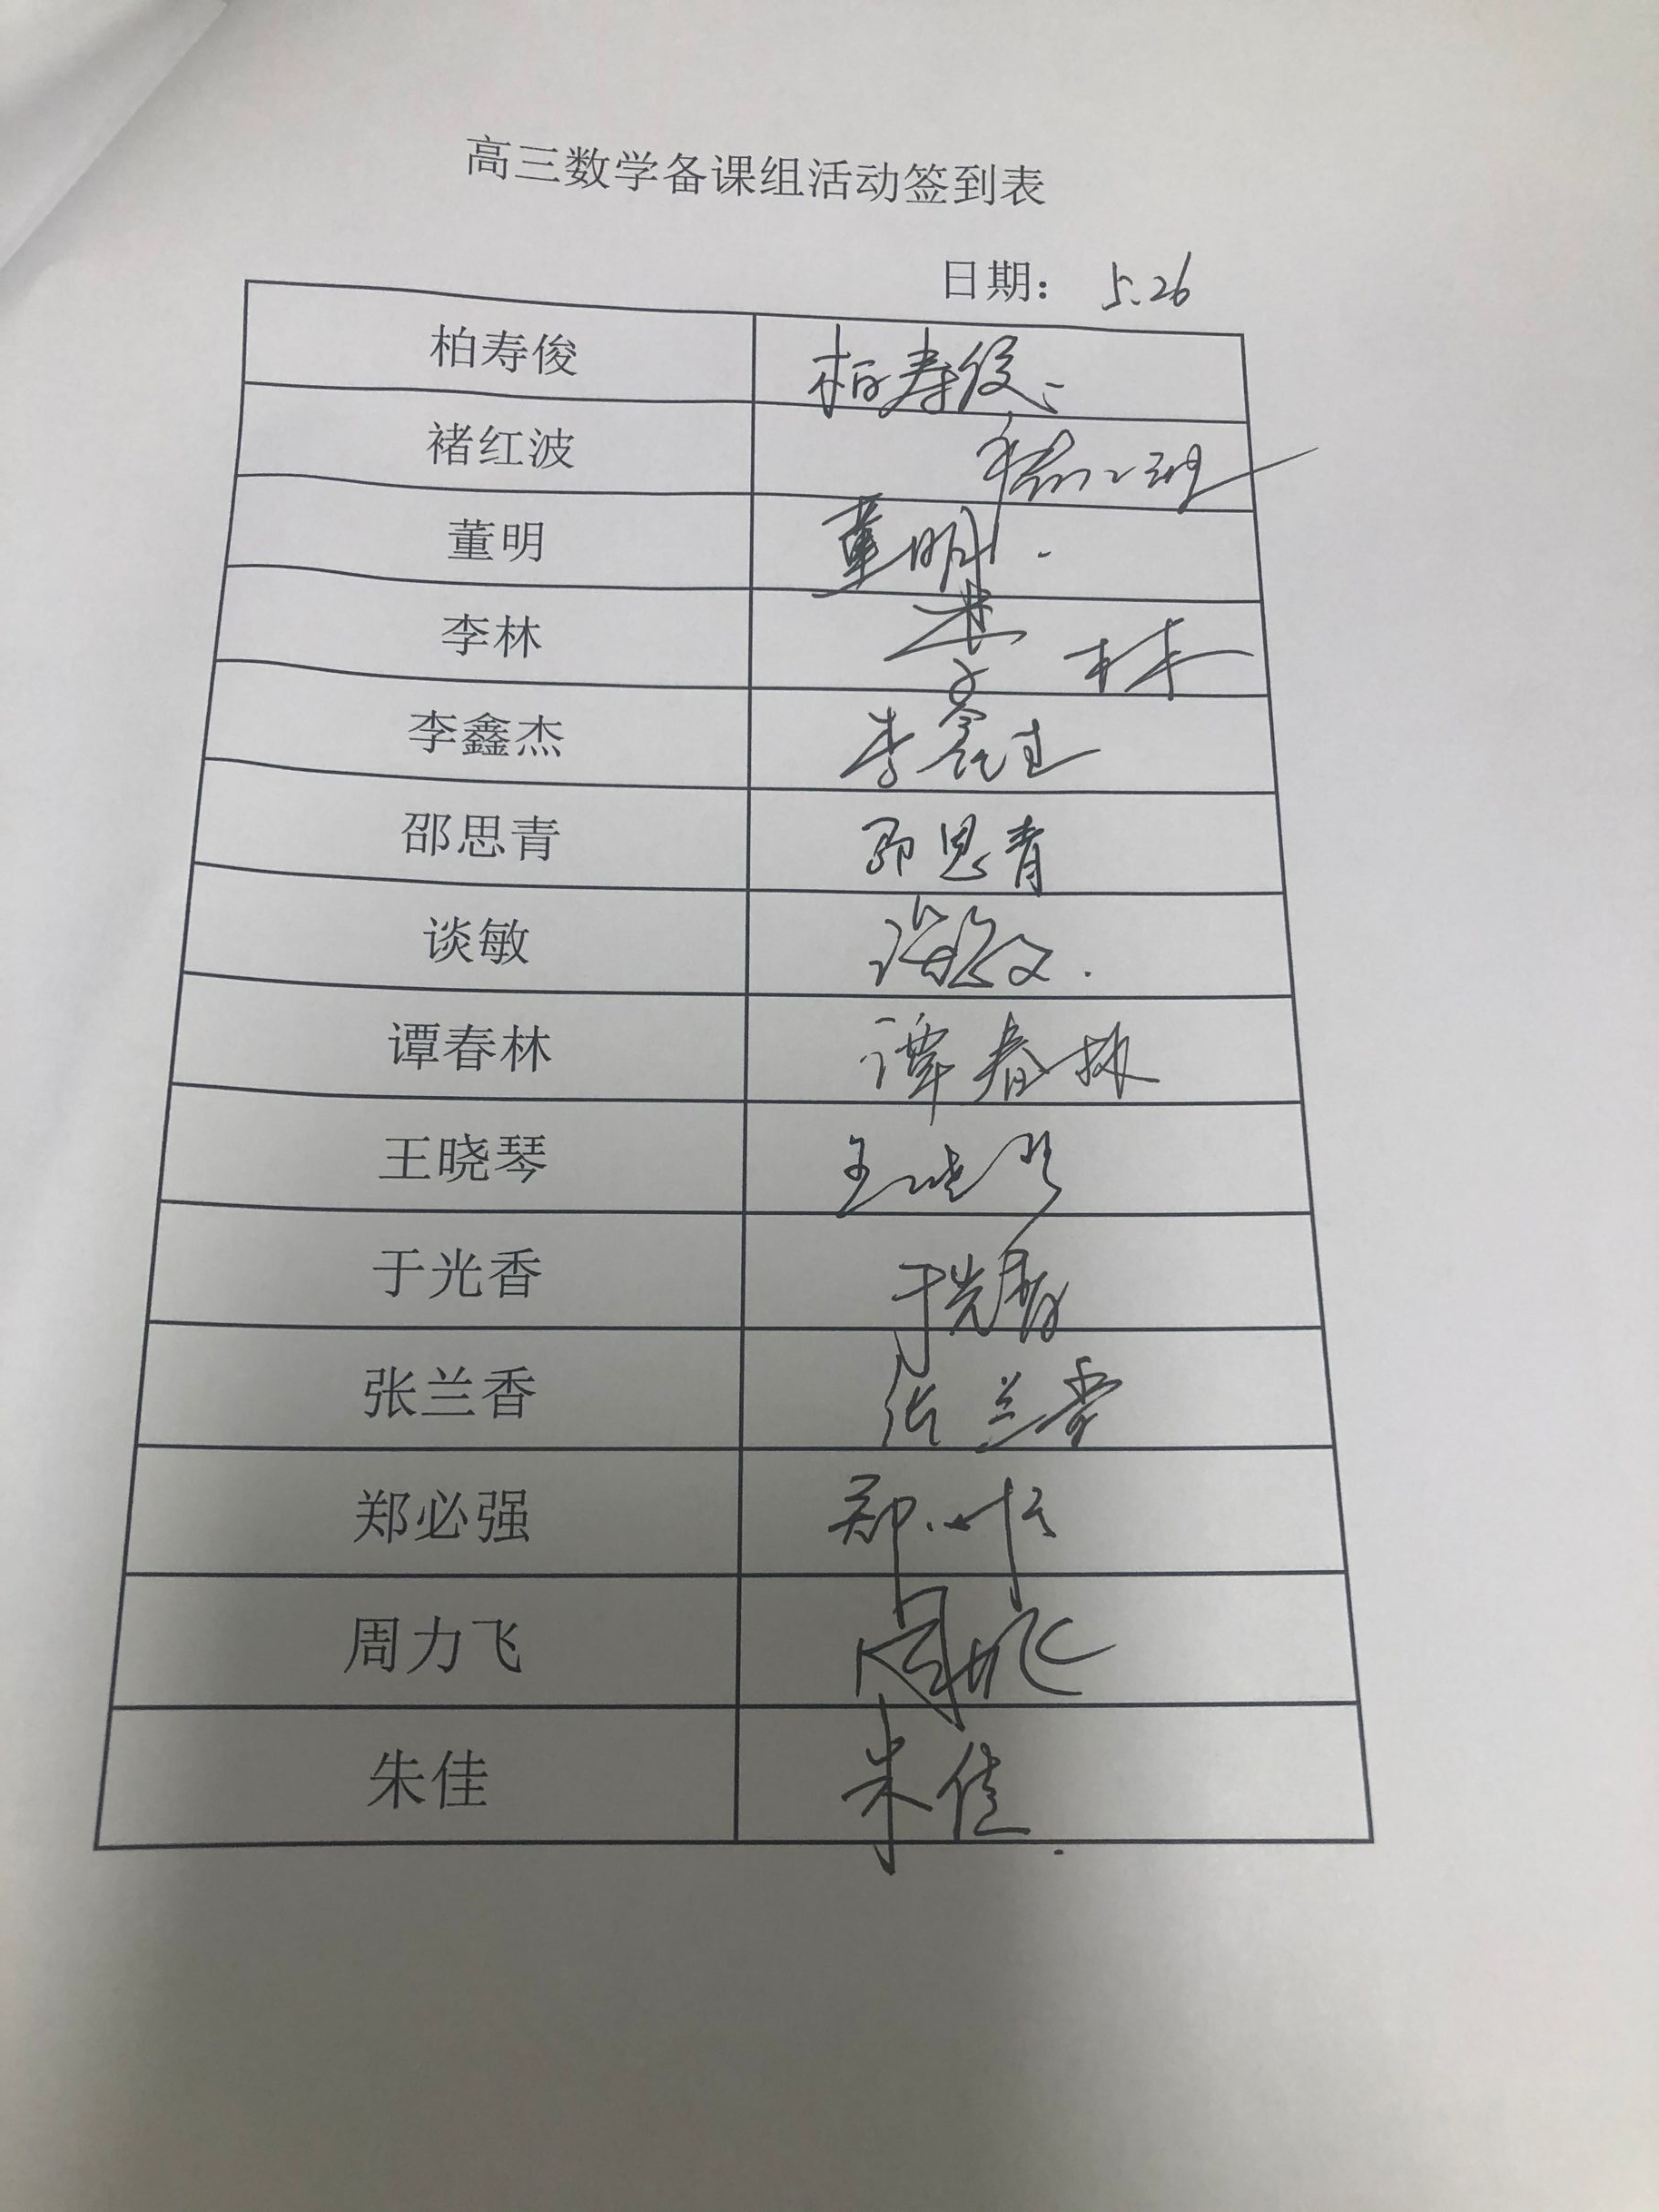 高三数学备课组活动签到表
日期： 5.26
柏寿俊 柏寿俊
褚红波 褚红波
董明 董明
李林 李林
李鑫杰 李鑫杰
邵思青 邵思青
谈敏 谈敏
谭春林 谭春林
王晓琴 王晓琴
于光香 于光香
张兰香 张兰香
郑必强 郑必强
周力飞 周力飞
朱佳 朱佳